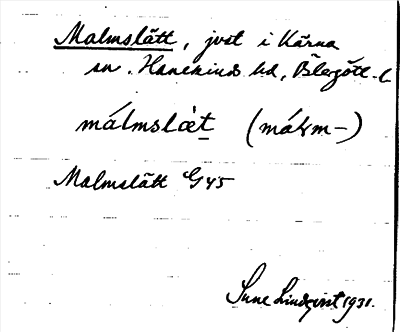 Malmslätt, jvst i Kärna
sn. Hanekinds hd, Östergötl. l
málmslæ̀t (máɬm–)
Malmslätt G45
Sune Lindqvist 1931.